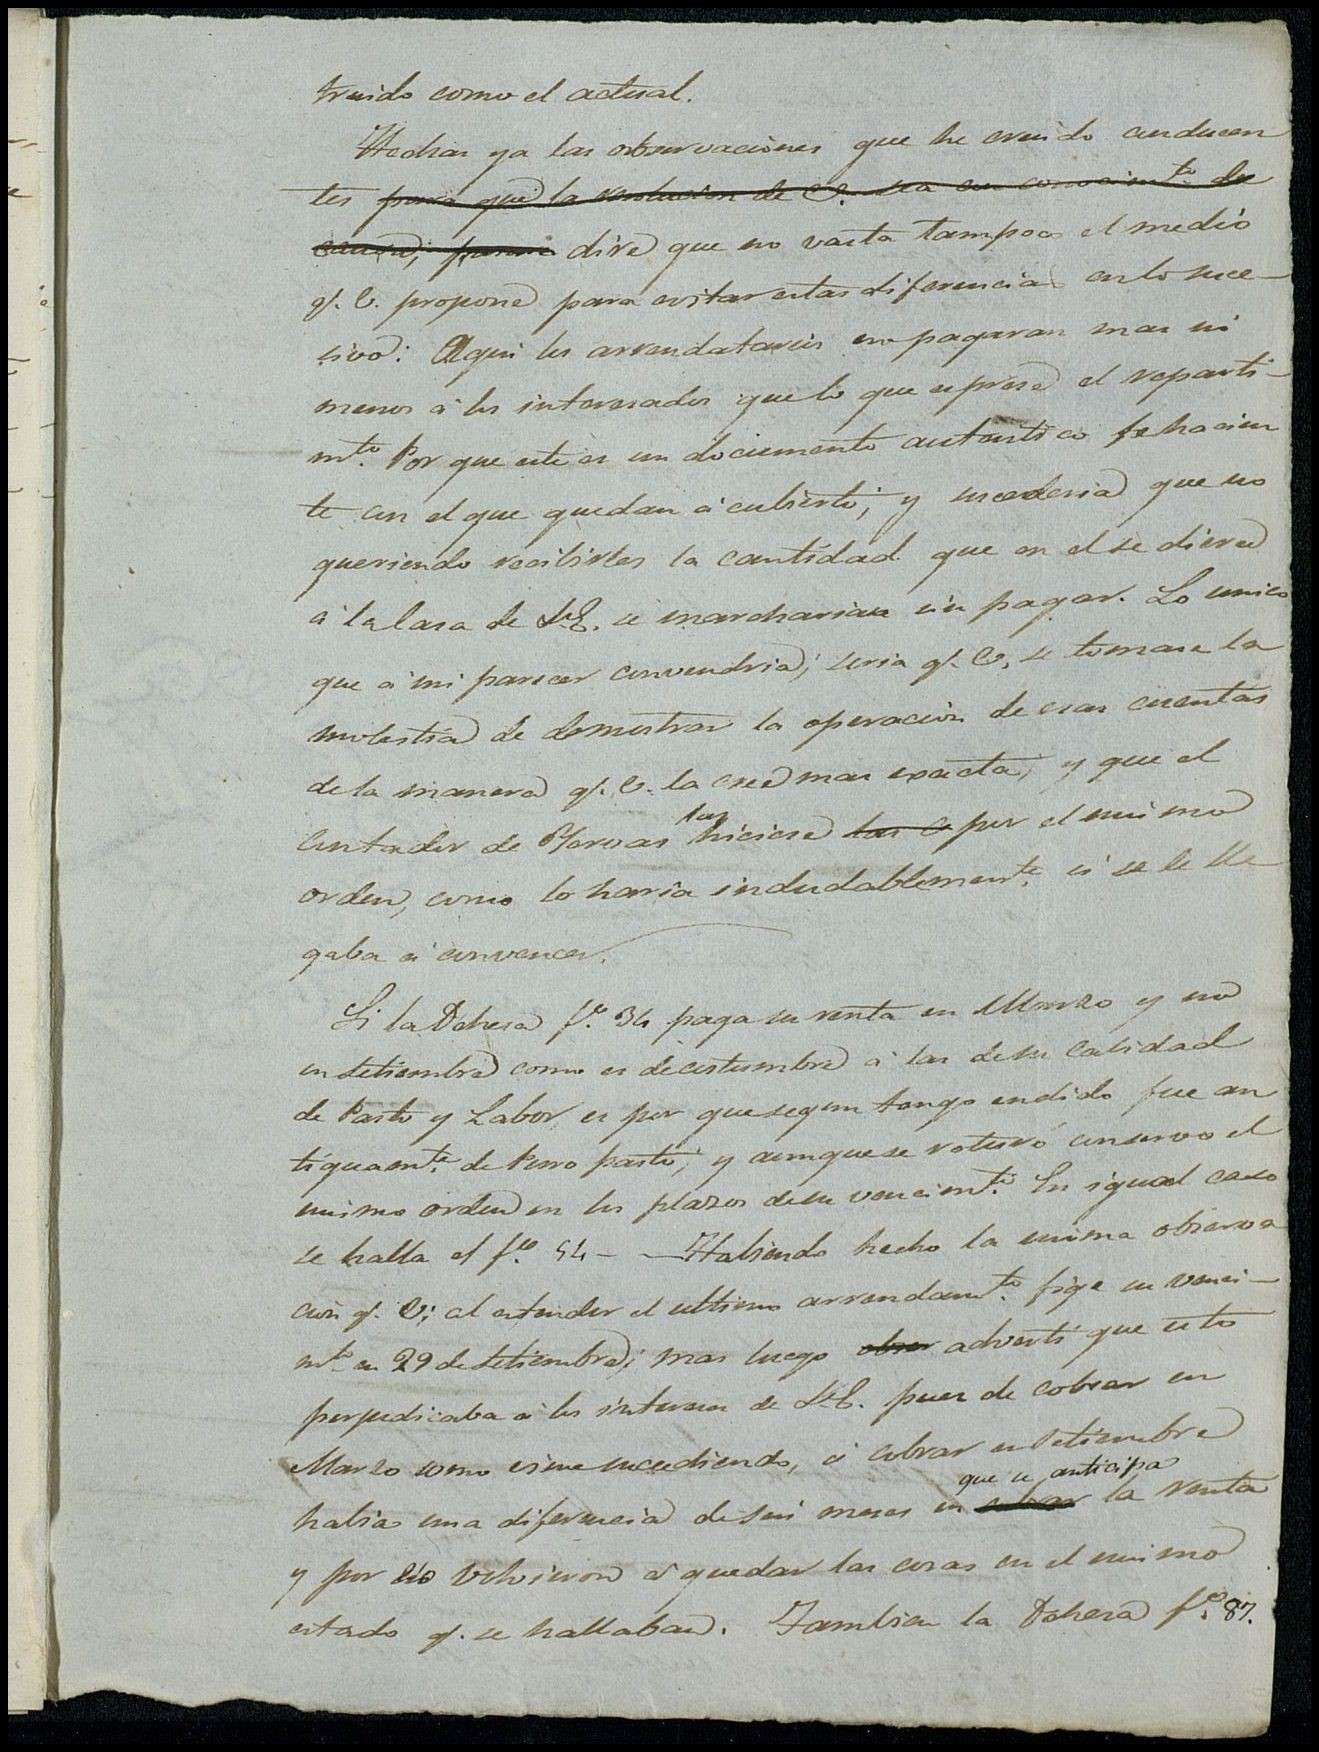 truido como el actual.
Hechas ya las observaciones que he creido conducen
tes para que la resolucion de V. sea con conocimto. de
causa, diré que no vasta tampoco el medio
q. V. propone para evitar estas diferencias en lo suce-
sivo: Aqui los arrendatarios no pagaran mas ni
menos á los interesados que lo que espresa el reparti-
mto. Por que este es un documento autentico fehacien
te con el que quedan á cubierto; y sucederia que no
queriendo recibirles la cantidad que en el se diera
á la Casa de S.E. se marcharian sin pagar. Lo unico
que á mi parecer convendria, seria q. V. se tomase la
molestia de demostrar la operacion de esas cuentas
de la manera q. V. la cree mas exacta, y que el
Contador de Yervas las hiciese las c por el mismo
orden, como lo haria indudablemente. si se le lle
gaba á convencer.
Si la Dehesa fo. 34 paga su renta en Marzo y no
en Setiembre como es de costumbre á las de su calidad
de Pasto y Labor, es por que segun tengo endido fue an
tiguamte. de Puro pasto; y aunque se roturó conservo el
mismo orden en los plazos de su vencimto. En igual caso
se halla el fo. 54 - Habiendo hecho la misma observa
cion q. V; al estender el ultimo arrendamto. fige su venci-
mto. en 29 de Setiembre; mas luego obser advertí que esto
perjudicaba á los intereses de S.E. pues de cobrar en
Marzo como viene sucediendo, á cobrar en Setiembre
habia una diferencia de seis meses en cobrar que se anticipa la renta
y por eso volvieron á quedar las cosas en el mismo
estado q. se hallaban. Tambien la Dehesa fo. 87.